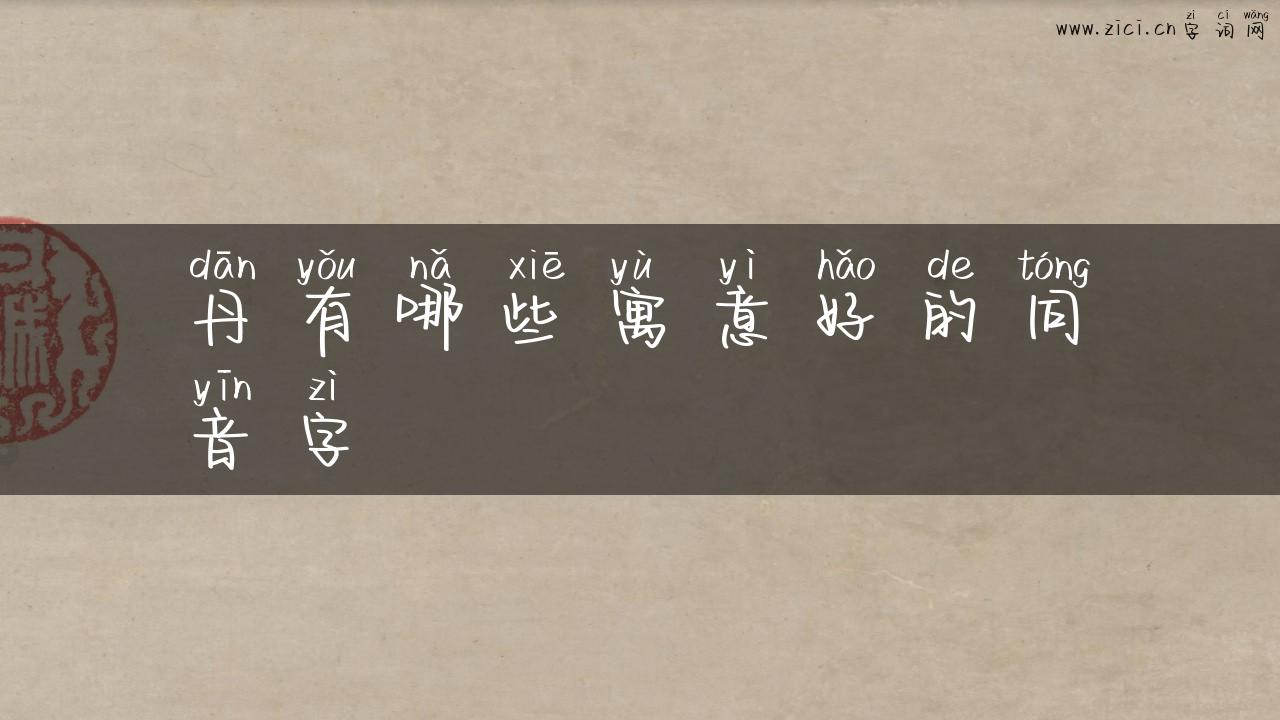 zì cí wǎng
www.zici.cn 字词网
dān yǒu nǎ xiē yù yì hǎo de tóng
丹有哪些寓意好的同
yīn zì
音字